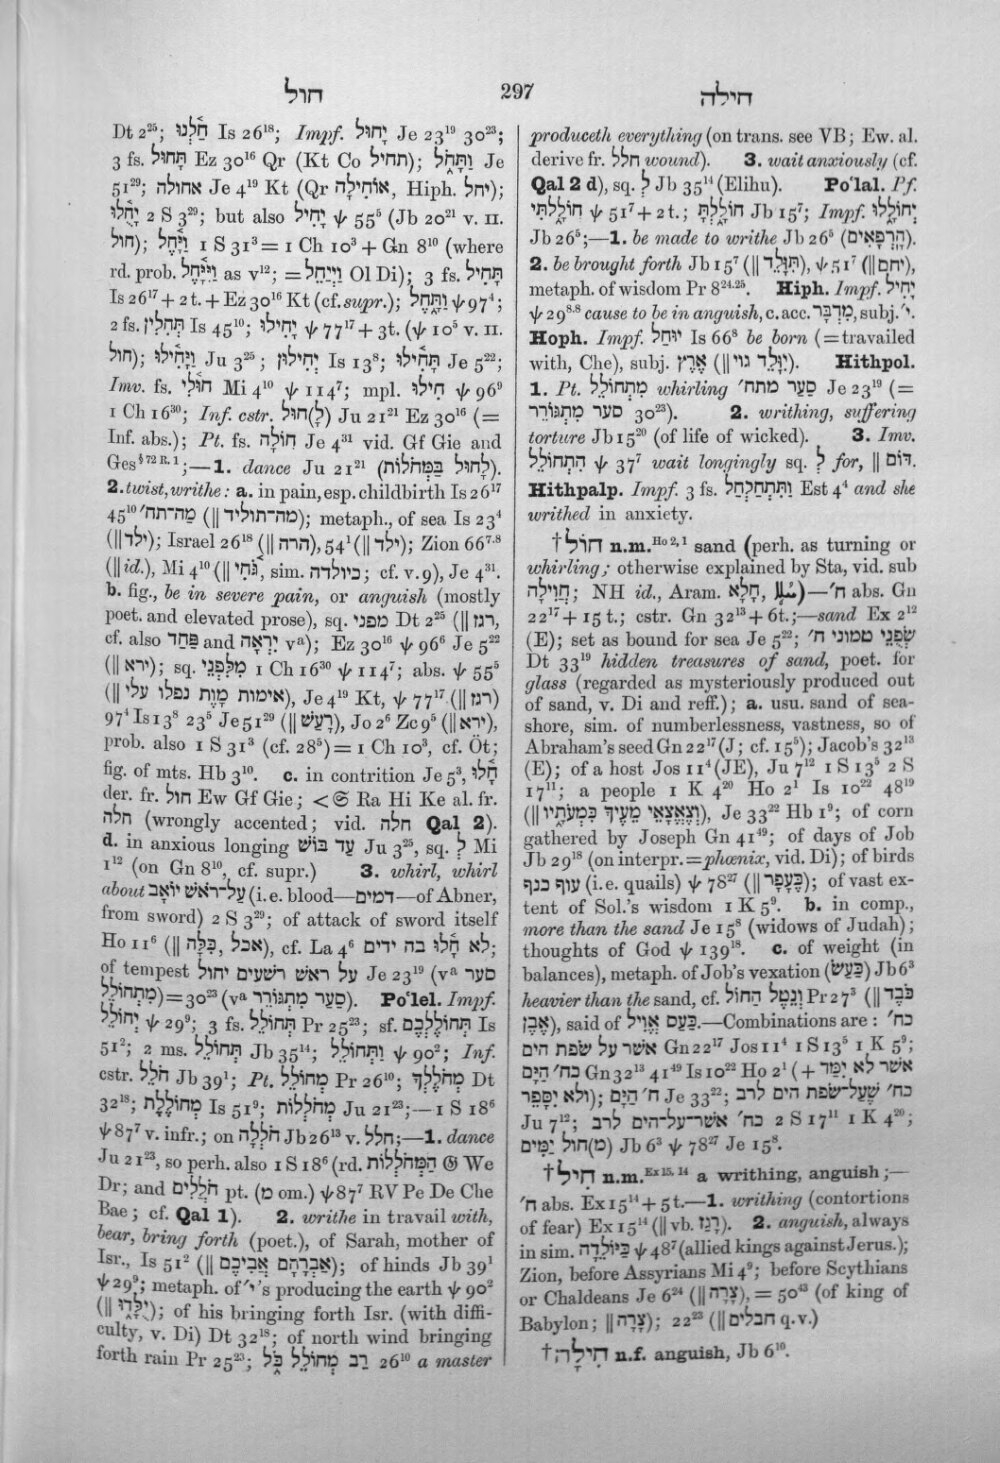 חול
297
חילה
Dt 2²⁵; חַ֫לְנוּ Is 26¹⁸; Impf. יָחוּל Je 23¹⁹ 30²³;
3 fs. תָּחוּל Ez 30¹⁶ Qr (Kt Co תחיל); וַתָּחֹל Je
51²⁹; אחולה Je 4¹⁹ Kt (Qr אוֹחִילָה, Hiph. יחל);
יָחֻ֫לוּ 2 S 3²⁹; but also יָחִיל ψ 55⁵ (Jb 20²¹ v. II.
חול); וַיָּ֫חֶל 1 S 31³ = 1 Ch 10³ + Gn 8¹⁰ (where
rd. prob. וַיְיַ֫חֶל as v¹²; = וַיְיַחֵל Ol Di); 3 fs. תָּחִיל
Is 26¹⁷ + 2 t. + Ez 30¹⁶ Kt (cf. supr.); וַתָּחֵל ψ 97⁴;
2 fs. תְּחִלִין Is 45¹⁰; יָחִילוּ ψ 77¹⁷ + 3t. (ψ 10⁵ v. II.
חול); וַיָּחִ֫ילוּ Ju 3²⁵; יְחִילוּן Is 13⁸; תָּחִ֫ילוּ Je 5²²;
Imv. fs. חוּלִי Mi 4¹⁰ ψ 114⁷; mpl. חִילוּ ψ 96⁹
1 Ch 16³⁰; Inf. cstr. חוּל(לָ) Ju 21²¹ Ez 30¹⁶ (=
Inf. abs.); Pt. fs. חוֹלָה Je 4³¹ vid. Gf Gie and
Ges§ 72 R. 1;—1. dance Ju 21²¹ (לָחוּל בַּמְּחֹלוֹת).
2. twist, writhe: a. in pain, esp. childbirth Is 26¹⁷
45¹⁰ מַה־תח׳ (‖ מה־תוליד); metaph., of sea Is 23⁴
(‖ ילד); Israel 26¹⁸ (‖ הרה), 54¹ (‖ ילד); Zion 66⁷·⁸
(‖ id.), Mi 4¹⁰ (‖ גֹּ֫חִי, sim. כיולדה; cf. v. 9), Je 4³¹.
b. fig., be in severe pain, or anguish (mostly
poet. and elevated prose), sq. מפני Dt 2²⁵ (‖ רגז,
cf. also פחד and יִרְאָה vᵃ); Ez 30¹⁶ ψ 96⁶ Je 5²²
(‖ ירא); sq. מִלִּפְנֵי 1 Ch 16³⁰ ψ 114⁷; abs. ψ 55⁵
(‖ אימות מָוֶת נפלו עלי), Je 4¹⁹ Kt, ψ 77¹⁷ (‖ רגז)
97⁴ Is 13⁸ 23⁵ Je 51²⁹ (‖ רָעַשׁ), Jo 2⁶ Zc 9⁵ (‖ ירא),
prob. also 1 S 31³ (cf. 28⁵) = 1 Ch 10³, cf. Öt;
fig. of mts. Hb 3¹⁰. c. in contrition Je 5³, חָ֫לוּ
der. fr. חול Ew Gf Gie; < 𝔖 Ra Hi Ke al. fr.
חלה (wrongly accented; vid. חלה Qal 2).
d. in anxious longing עַד בּוֹשׁ Ju 3²⁵, sq. לְ Mi
1¹² (on Gn 8¹⁰, cf. supr.) 3. whirl, whirl
about עַל־רֹאשׁ יוֹאָב (i.e. blood—דמים—of Abner,
from sword) 2 S 3²⁹; of attack of sword itself
Ho 11⁶ (‖ אכל, כִּלָּה), cf. La 4⁶ לא חָ֫לוּ בה ידים;
of tempest על ראש רשעים יחול Je 23¹⁹ (vᵃ סער
מִתְחוֹלֵל) = 30²³ (vᵃ סַעַר מִתְגּוֹרֵר). Poʻlel. Impf.
יְחוֹלֵל ψ 29⁹; 3 fs. תְּחוֹלֵל Pr 25²³; sf. תְּחוֹלֶלְכֶם Is
51²; 2 ms. תְּחוֹלֵל Jb 35¹⁴; וַתְּחוֹלֵל ψ 90²; Inf.
cstr. חֹלֵל Jb 39¹; Pt. מְחוֹלֵל Pr 26¹⁰; מְחֹלֲלֶךָ Dt
32¹⁸; מְחוֹלֶלֶת Is 51⁹; מְחֹלְלוֹת Ju 21²³;—1 S 18⁶
ψ 87⁷ v. infr.; on חֹלֲלָה Jb 26¹³ v. חלל;—1. dance
Ju 21²³, so perh. also 1 S 18⁶ (rd. הַמְּחֹלְלוֹת 𝔊 We
Dr; and חֹלֲלִים pt. (מ om.) ψ 87⁷ RV Pe De Che
Bae; cf. Qal 1). 2. writhe in travail with,
bear, bring forth (poet.), of Sarah, mother of
Isr., Is 51² (‖ אַבְרָהָם אֲבִיכֶם); of hinds Jb 39¹
ψ 29⁹; metaph. of י׳'s producing the earth ψ 90²
(‖ יֻלָּ֑דוּ); of his bringing forth Isr. (with diffi-
culty, v. Di) Dt 32¹⁸; of north wind bringing
forth rain Pr 25²³; רַב מְחוֹלֵל כֹּל 26¹⁰ a master
produceth everything (on trans. see VB; Ew. al.
derive fr. חלל wound). 3. wait anxiously (cf.
Qal 2 d), sq. לְ Jb 35¹⁴ (Elihu). Poʻlal. Pf.
חוֹלָלְתִּי ψ 51⁷ + 2 t.; חוֹלָלְתָּ Jb 15⁷; Impf. יְחוֹלָלוּ
Jb 26⁵;—1. be made to writhe Jb 26⁵ (הָרְפָאִים).
2. be brought forth Jb 15⁷ (‖ תִּוָּלֵד), ψ 51⁷ (‖ יחם),
metaph. of wisdom Pr 8²⁴·²⁵. Hiph. Impf. יָחִיל
ψ 29⁸·⁸ cause to be in anguish, c. acc. מִדְבָּר, subj. י׳.
Hoph. Impf. יוּחַל Is 66⁸ be born (= travailed
with, Che), subj. אֶרֶץ (‖ יִוָּלֵד גוי). Hithpol.
1. Pt. מִתְחוֹלֵל whirling סַעַר מתח׳ Je 23¹⁹ (=
סער מִתְגּוֹרֵר 30²³). 2. writhing, suffering
torture Jb 15²⁰ (of life of wicked). 3. Imv.
הִתְחוֹלֵל ψ 37⁷ wait longingly sq. לְ for, ‖ דּוֹם.
Hithpalp. Impf. 3 fs. וַתִּתְחַלְחַל Est 4⁴ and she
writhed in anxiety.
†חוֹל n.m. Ho 2, 1 sand (perh. as turning or
whirling; otherwise explained by Sta, vid. sub
חֲוִילָה; NH id., Aram. חָלָא, ܚܠܐ)—ח׳ abs. Gn
22¹⁷ + 15 t.; cstr. Gn 32¹³ + 6t.;—sand Ex 2¹²
(E); set as bound for sea Je 5²²; שְׂפֻנֵי טמוני ח׳
Dt 33¹⁹ hidden treasures of sand, poet. for
glass (regarded as mysteriously produced out
of sand, v. Di and reff.); a. usu. sand of sea-
shore, sim. of numberlessness, vastness, so of
Abraham's seed Gn 22¹⁷ (J; cf. 15⁵); Jacob's 32¹³
(E); of a host Jos 11⁴ (JE), Ju 7¹² 1 S 13⁵ 2 S
17¹¹; a people 1 K 4²⁰ Ho 2¹ Is 10²² 48¹⁹
(‖ וְצֶאֱצָאֵי מֵעֶיךָ כִּמְעֹתָיו), Je 33²² Hb 1⁹; of corn
gathered by Joseph Gn 41⁴⁹; of days of Job
Jb 29¹⁸ (on interpr. = phœnix, vid. Di); of birds
עוף כנף (i.e. quails) ψ 78²⁷ (‖ כֶּעָפָר); of vast ex-
tent of Sol.'s wisdom 1 K 5⁹. b. in comp.,
more than the sand Je 15⁸ (widows of Judah);
thoughts of God ψ 139¹⁸. c. of weight (in
balances), metaph. of Job's vexation (כַּעַשׂ) Jb 6³
heavier than the sand, cf. וְנֵטֶל הַחוֹל Pr 27³ (‖ כֹּבֶד
אֶבֶן), said of כַּעַס אֱוִיל.—Combinations are: כח׳
אשר על שפת הים Gn 22¹⁷ Jos 11⁴ 1 S 13⁵ 1 K 5⁹;
כח׳ הַיָּם Gn 32¹³ 41⁴⁹ Is 10²² Ho 2¹ (+ אשר לא יִמַּד
ולא יִסָּפֵר); ח׳ הַיָּם Je 33²²; כח׳ שֶׁעַל־שׂפת הים לרב
Ju 7¹²; כח׳ אשר־על־הים לרב 2 S 17¹¹ 1 K 4²⁰;
חוֹל יַמִּים(מ) Jb 6³ ψ 78²⁷ Je 15⁸.
†חִיל n.m. Ex 15, 14 a writhing, anguish;—
ח׳ abs. Ex 15¹⁴ + 5 t.—1. writhing (contortions
of fear) Ex 15¹⁴ (‖ vb. רָגַז). 2. anguish, always
in sim. כַּיּוֹלֵדָה ψ 48⁷ (allied kings against Jerus.);
Zion, before Assyrians Mi 4⁹; before Scythians
or Chaldeans Je 6²⁴ (‖ צָרָה), = 50⁴³ (of king of
Babylon; ‖ צָרָה); 22²³ (‖ חבלים q.v.)
†חִילָה n.f. anguish, Jb 6¹⁰.